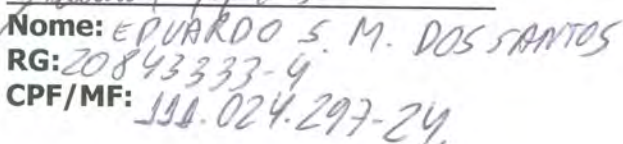 Nome: EDUARDO S. M. DOS SANTOS
RG: 20843333-4
CPF/MF: 111.024.297-24